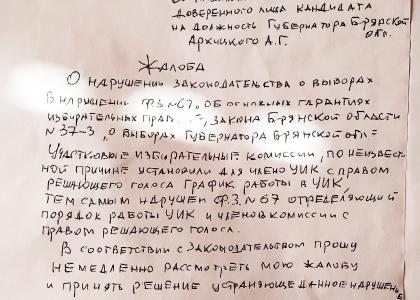 доверенного лица кандидата
на должность Губернатора Брянской
обл.
Архицкого А.Г.
Жалоба
О нарушении законодательства о выборах
В нарушении Ф.З №67 „Об основных гарантиях
избирательных прав...", закона Брянской области
N 37-З „О выборах Губернатора Брянской обл=
Участковые избирательные комиссии, по неизвест
ной причине установили для члено УИК с правом
решающего голоса график работы в УИК,
тем самым нарушен Ф.З. №67 определяющий
порядок работы УИК и членов комиссии с
правом решающего голоса.
В соответствии с законодательством прошу
немедленно рассмотреть мою жалобу
и принять решение устраняющее данное нарушение